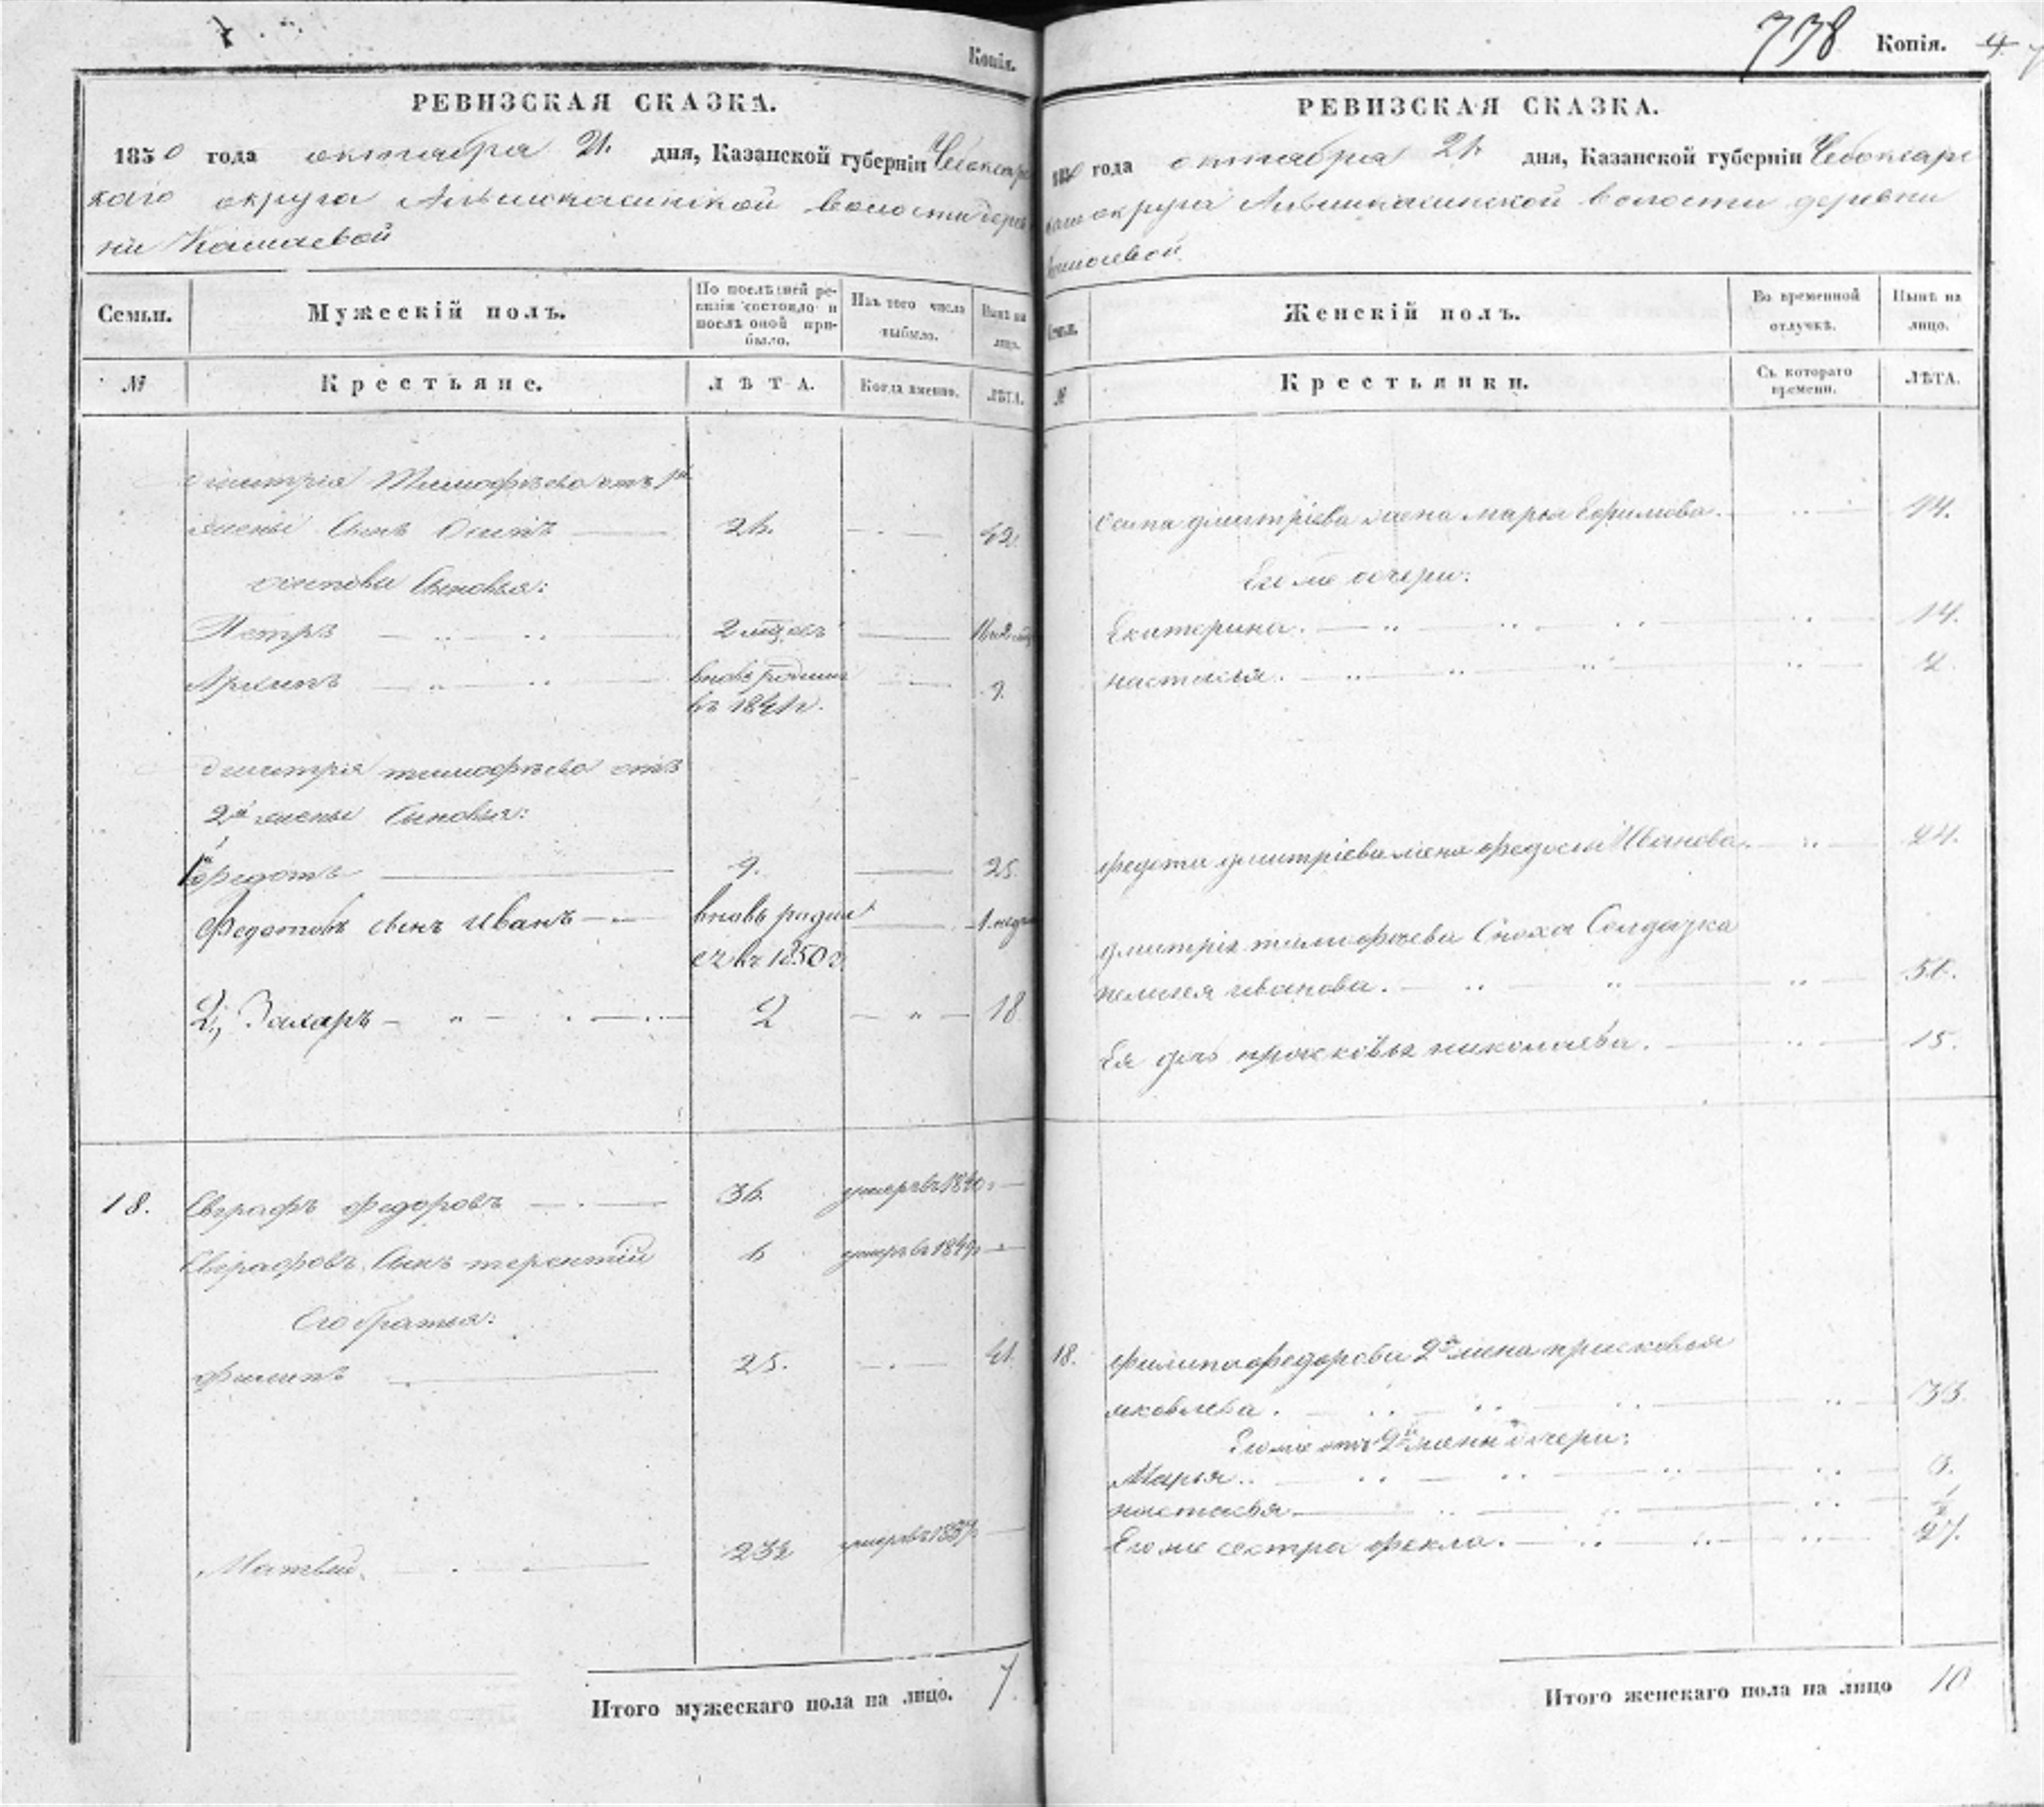 Копія.
РЕВИЗСКАЯ СКАЗКА.
1850 года октября 21. дня, Казанской губерніи Чебоксар
скаго округа волости дерев
ни Кошаевой
Семьи.
Мужескій полъ.
По послѣдней ре-
визіи состояло и
послѣ оной при-
было.
Изъ того числа
выбыло.
Нынѣ на
лицо.
№
Крестьяне.
ЛѢТА.
Когда именно.
ЛѢТА.
Дмитрія Тимофѣева отъ 1й
жены Сынъ Осипъ 26. 42
осиповы Сыновья:
Петръ 2 мѣс
Архипъ вновь родился 9.
въ 1841г.
Дмитрія тимофѣева отъ
2й жены Сыновья:
1й Федотъ 9. 25.
Федотовъ сынъ Иванъ вновь родил 1 неде
ся въ 1850 г.
2й Захаръ 2 18
18. Евграфъ федоровъ 36. умеръ въ 1840
Евграфовъ Сынъ терентій 6 умеръ въ 1849
Его братья:
филипъ 25. 41.
Матвей умеръ въ
Итого мужескаго пола на лицо. 7.
738 Копія. 4
РЕВИЗСКАЯ СКАЗКА.
1850 года октября 21. дня, Казанской губерніи Чебоксарс
каго округа волости деревни
Кошаевой
Семьи.
Женскій полъ.
Во временной
отлучкѣ.
Нынѣ на
лицо.
№
Крестьянки.
Съ котораго
времени.
ЛѢТА.
Осипа дмитріева жена марья Ефимова. 44.
Его же дочери:
Екатерина. 14.
настасья.
Федота дмитріева жена федосья Иванова. 24.
дмитрія тимофѣева Сноха Солдатка
пелагея иванова.
Ея дочь прасковья николаева. 15.
18. филипа федорова 2я жена прасковья
яковлева. 33.
Его же отъ 2й жены дочери:
Марья.
настасья
Его же сестра фекла. 27.
Итого женскаго пола на лицо 10